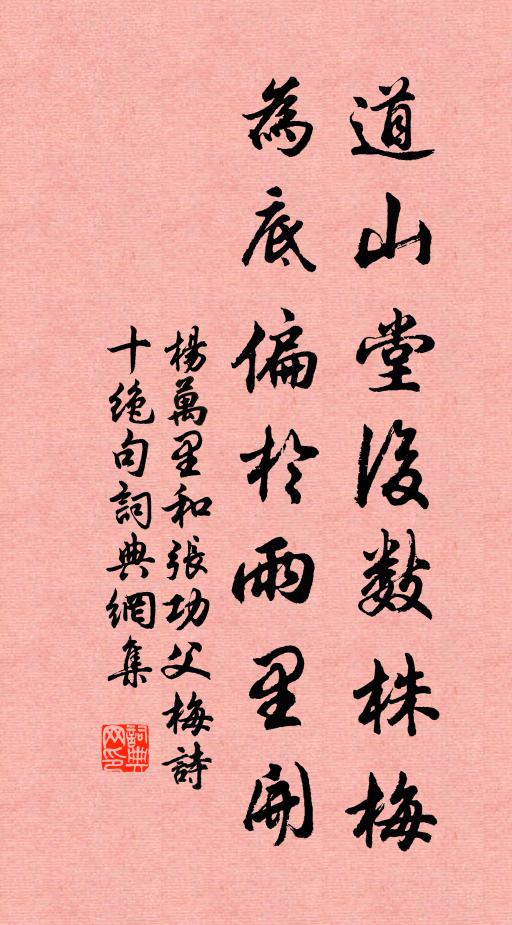 道山堂後数株梅
為底偏於雨里開
楊萬里和張功父梅詩
十絶句詞典網集
詞典网印